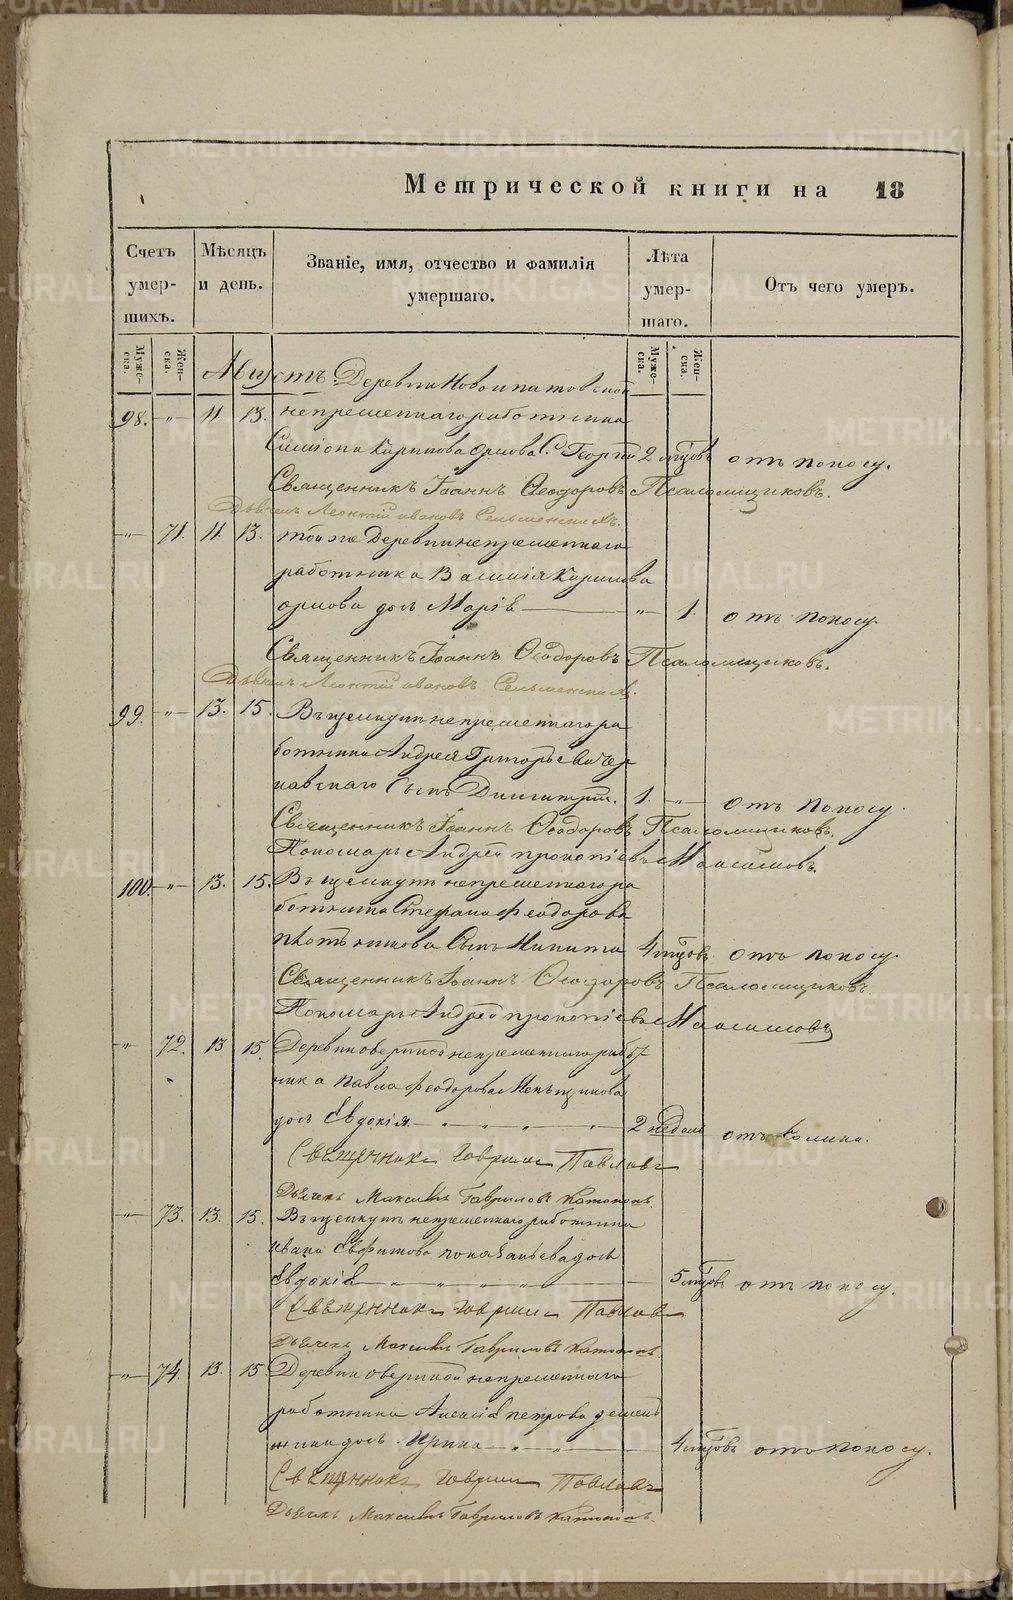 METRIKI.GASO-URAL.RU
Метрической книги на 18
Счетъ умер- шихъ.
Мѣсяцъ и день.
Званіе, имя, отчество и фамилія умершаго.
Лѣта умер- шаго.
Отъ чего умеръ.
Муже- ска.
Жен- ска.
Муже- ска.
Жен- ска.
Августъ. Деревни Новоипатовской
98. -"- 11 13. непременнаго работника
Симіона Кирилова Орлова С. Георгій 2 мцовъ отъ поносу.
Священникъ Іоаннъ Ѳеодоровъ Псаломщиковъ.
Дьячекъ Леонтій Ивановъ
-"- 71. 11. 13. той же Деревни непременнаго
работника Василія Кирилова
Орлова дочь Марія -"- 1. отъ поносу.
Священникъ Іоаннъ Ѳеодоровъ Псаломщиковъ.
Дьячекъ Леонтій Ивановъ
99. -"- 13. 15. непременнаго ра
ботника Андрея Григорьева Чер
навскаго Сынъ Димитрій. 1. -"- отъ поносу.
Священникъ Іоаннъ Ѳеодоровъ Псаломщиковъ.
Пономарь Андрей Прокопіевъ Максимовъ.
100. -"- 13. 15. непременнаго ра
ботника Стефана Феодорова
Плотникова Сынъ Никита 4 мцовъ отъ поносу.
Священникъ Іоаннъ Ѳеодоровъ Псаломщиковъ.
Пономарь Андрей Прокопіевъ Максимовъ
-"- 72. 13 15. Деревни непременнаго работ
ника Павла Феодорова
дочь Евдокія 2 недель отъ
Священникъ Гавриилъ Павловъ
Дьячекъ Максимъ Гавриловъ
-"- 73. 13. 15. непременнаго работника
Ивана Евфимова дочь
Евдокія 5 мцовъ отъ поносу.
Священникъ Гавриилъ Павловъ
Дьячекъ Максимъ Гавриловъ
-"- 74. 13. 15 Деревни непременнаго
работника Алексія Петрова
дочь Ирина 4 мцовъ отъ поносу.
Священникъ Гавриилъ Павловъ
Дьячекъ Максимъ Гавриловъ